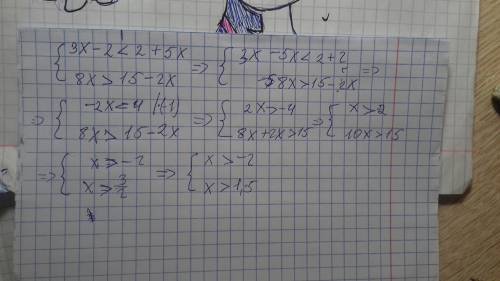 { 3x - 2 < 2 + 5x ; 8x > 15 - 2x => { 3x - 5x < 2 + 2 ; 8x > 15 - 2x =>
=> { -2x < 4 |(-1) ; 8x > 15 - 2x => { 2x > -4 ; 8x + 2x > 15 => { x > -2 ; 10x > 15
=> { x > -2 ; x > 3/2 => { x > -2 ; x > 1,5